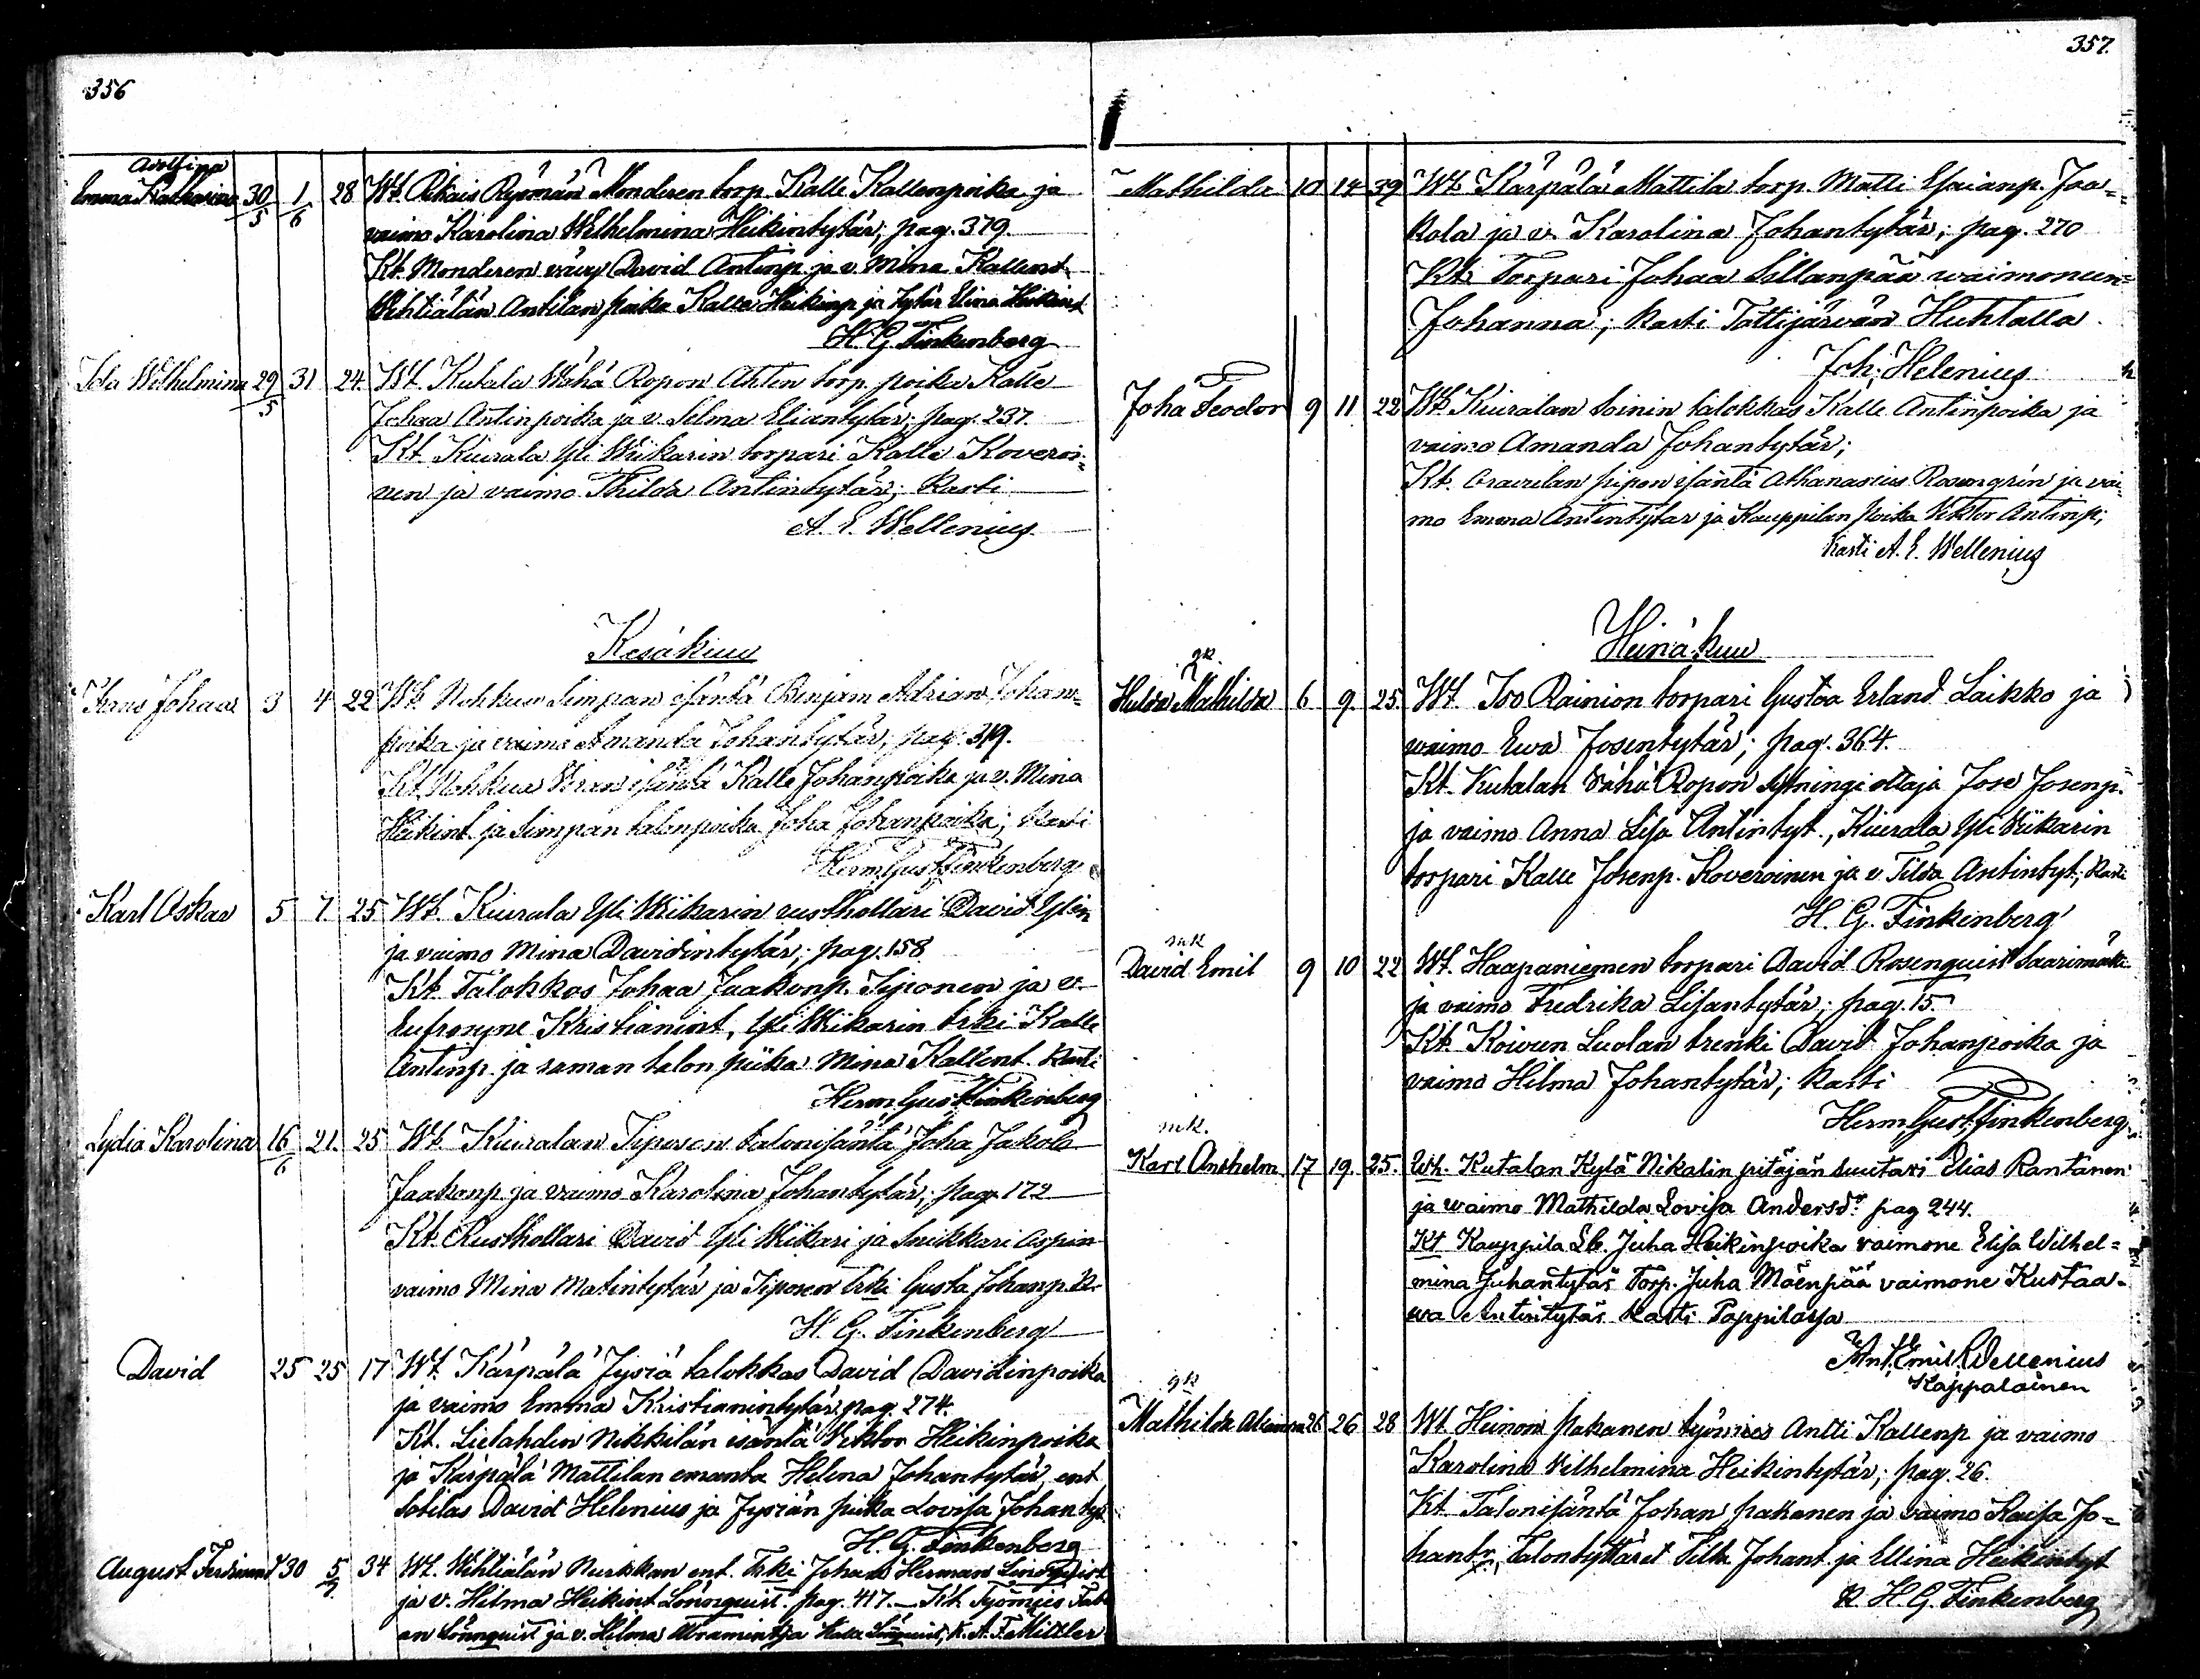 356
Adolfina
Emma Katharina 30/5 1/6 28 Wt. Rekais Ryömän Monderen torp. Kalle Kallenpoika ja
vaimo Karolina Wilhelmina Heikintytär; pag. 379.
Kt. Monderen vävy David Antinp. ja v. Mina Kallent.
Wihtiälän Anttilan poika Kalle Heikinp. ja tytär Elina Heikint.
H. G. Finkenberg
Ida Wilhelmina 29/5 31 24. Wt. Kutala Wähä Ropon Ahten torp. poika Kalle
Johaa Antinpoika ja v. Selma Eliantytär; pag. 237.
Kt. Kiurala Yli Wiikarin torpari Kalle Koveroi-
nen ja vaimo Thilda Antintytär; kasti
A. E. Wellenius
Kesäkuu
Frans Johaa 3 4 22 Wt. Nohkua Simpan isäntä Benjam Adrian Johan-
poika ja vaimo Amanda Johantytär, pag. 319.
Kt. Nohkua isäntä Kalle Johanpoika ja v. Mina
Heikint. ja Simpan talonpoika Joha Johanpoika; kasti
Herm. Gust. Finkenberg
Karl Oskar 5 7. 25 Wt. Kiurala Yli Wiikarin rusthollari David Ylin
ja vaimo Mina Davidintytär; pag. 158
Kt. Talokkas Johaa Jaakonp. Siponen ja v.
Eufrosyne Kristianint, Yli Wiikarin trki Kalle
Antinp. ja saman talon piika Mina Kallent. kasti
Herm. Gust. Finkenberg
Lydia Karolina 16/6 21. 25 Wt. Kiuralan Siposen talonisäntä Joha Jakob
Jaakonp ja vaimo Karolina Johantytär, pag. 172
Kt. Rusthollari David Yli Wiikari ja Snikkari Aspin
vaimo Mina Matintytär ja Siposen trki Gusta Johanp. k.
H. G. Finkenberg
David 25 25 17 Wt. Kärpälä Jyriä talokkas David Davidinpoika
ja vaimo Emma Kristianintytär, pag. 274.
Kt. Lielahden Nikkilän isäntä Viktor Heikinpoika
ja Kärpälä Mattilan emäntä Helena Johantytär, ent
sotilas David Helenius ja Jyriän piika Lovisa Johantyt.
H. G. Finkenberg
August Ferdinand 30 5/7 34 Wt. Wihtiälän Nurkkan ent. Trki Johan Herman Lindqvist
ja v. Hilma Heikint Lönnquist. pag. 417. — Kt. Työmies Fabi
an Lönnquist ja v. Hilma Abramint ja Kalle Lönquist, K. A. F. Mittler
357.
Mathilda 10 14 39 Wt. Kärpälä Mattila torp. Matti Esaianp. Jaa-
kola ja v. Karolina Johantytär; pag. 270
Kt. Torpari Johaa Sillanpää waimoneen
Johanna; kasti Tottijärven Huhtalla.
Joh. Helenius
Joha Feodor 9 11 22 Wt. Kiuralan Soinin talokkas Kalle Antinpoika ja
vaimo Amanda Johantytär;
Kt. isäntä Athanasius Rosengrén ja vai-
mo Emma Antintytär ja Kauppilan poika Viktor Antinp;
kasti A. E. Wellenius
Heinäkuu
gk.
Hulda Mathilda 6 9. 25. Wt. Iso Rainion torpari Gustaa Erland Laikko ja
waimo Ewa Josentytär; pag. 364.
Kt. Kutalan Vähä Ropon sytningi ottaja Jose Josenp.
ja vaimo Anna Lisa Antintyt., Kiurala Yli Wiikarin
torpari Kalle Josenp. Koveroinen ja v. Tilda Antintyt; kasti
H. G. Finkenberg
mk
David Emil 9 10 22 Wt. Haapaniemen torpari David Rosenquist Saarimäki
ja vaimo Fredrika Lisantytär; pag. 15.
Kt. Koivun Luolan trenki David Johanpoika ja
vaimo Hilma Johantytär; kasti
Herm. Gust. Finkenberg
mk.
Karl Anshelm 17 19. 25. Wh. Kutalan Kylä Nikalin pitäjän suutari Elias Rantanen
ja waimo Mathilda Lovisa Andersdr. pag 244.
Kt Kauppila Lb. Juha Heikinpoika vaimone Elisa Wilhel=
mina Juhantytär Torp. Juha Mäenpää vaimone Kustaa-
wa Antintytär kasti Pappilassa
Ant. Emil Wellenius
Kappalainen
gk
Mathilda Aleina 26 26 28 Wt. Heinoin Pakanen työmies Antti Kallenp ja vaimo
Karolina Vilhelmina Heikintytär; pag. 26.
Kt Talonisäntä Johan Pakanen ja vaimo Kaisa Jo-
hantr.; Talontyttäret Tilta Johant ja Elina Heikintyt
k. H. G. Finkenberg